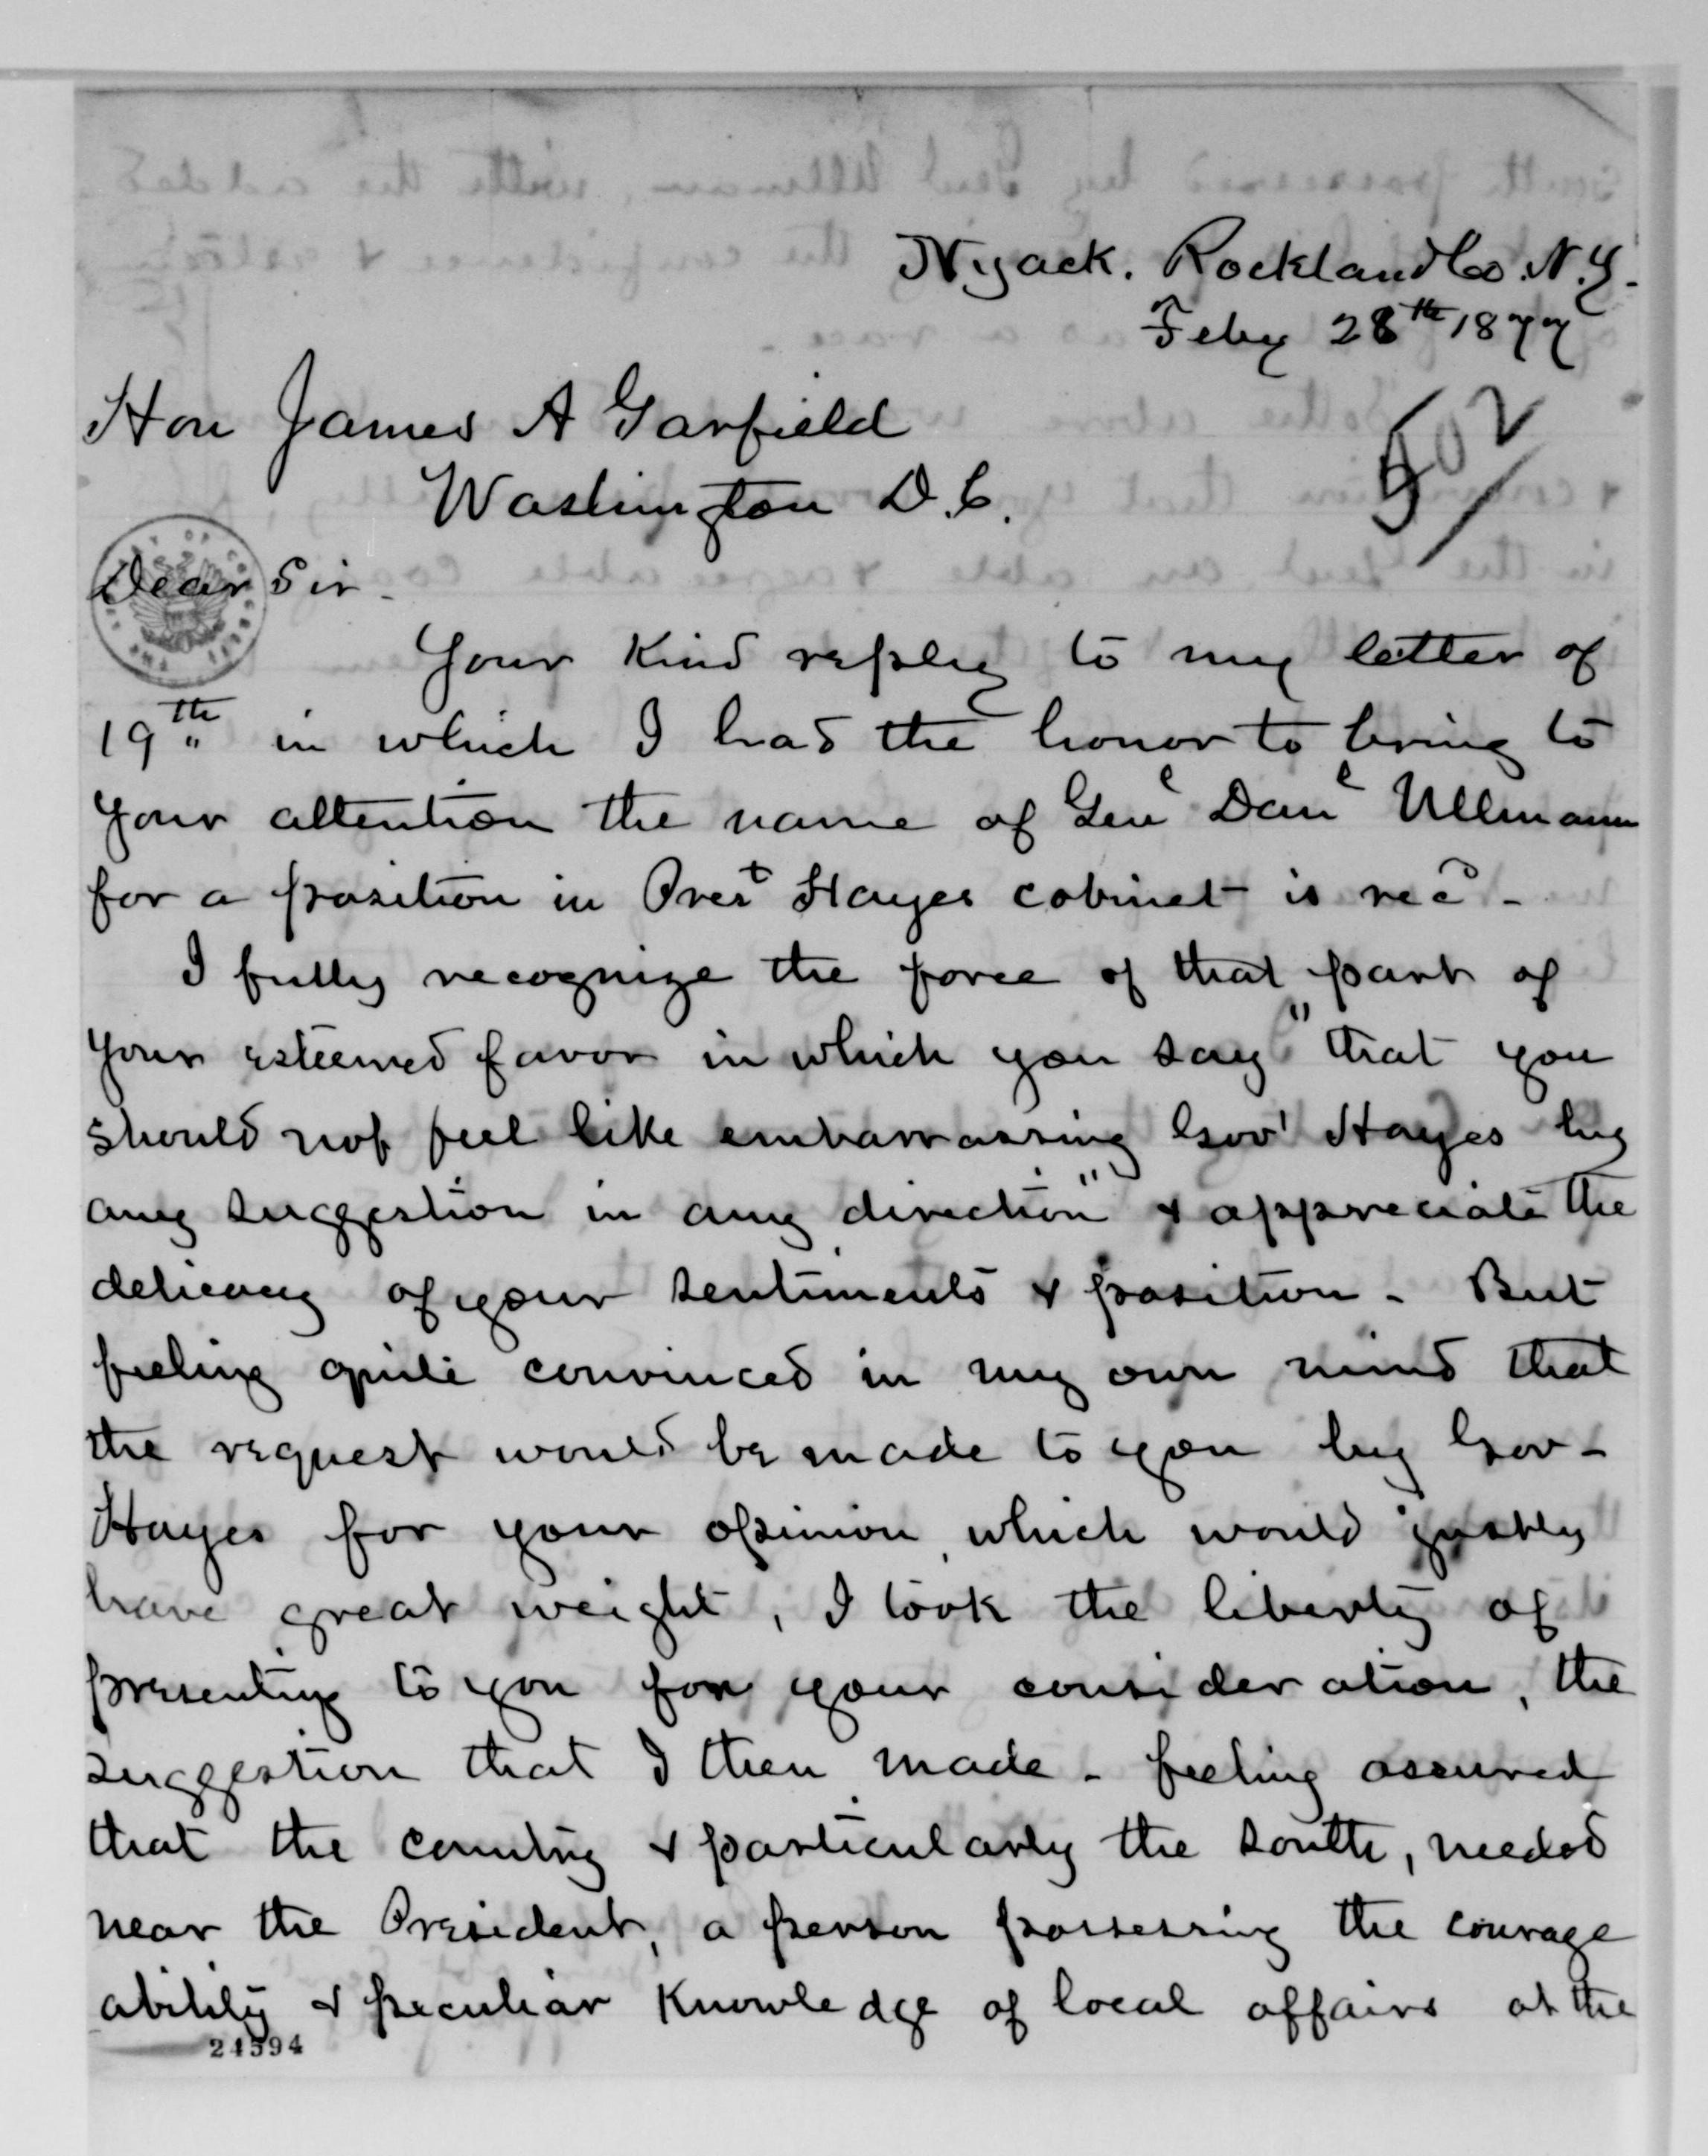 Nyack. Rockland Co. N.Y.
Feby 28th 1877
502
Hon James A Garfield
Washington D.C.
Dear Sir -
Your Kind reply to my letter of
19th in which I had the honor to bring to
your attention the name of Genl Danl Ullmann
for a position in Prest Hayes cabinet is recd -
I fully recognize the force of that part of
your esteemed favor in which you say "that you
should not feel like embarrassing Gov' Hayes by
any suggestion in any direction" & appreciate the
delicacy of your sentiments & position - But
feeling quite convinced in my own mind that
the request would be made to you by Gov -
Hayes for your opinion, which would justly
have great weight, I took the liberty of
presenting to you for your consideration, the
suggestion that I then made - feeling assured
that the country & particularly the south, needed
near the President, a person possessing the courage
ability & peculiar Knowledge of local affairs at the
24594